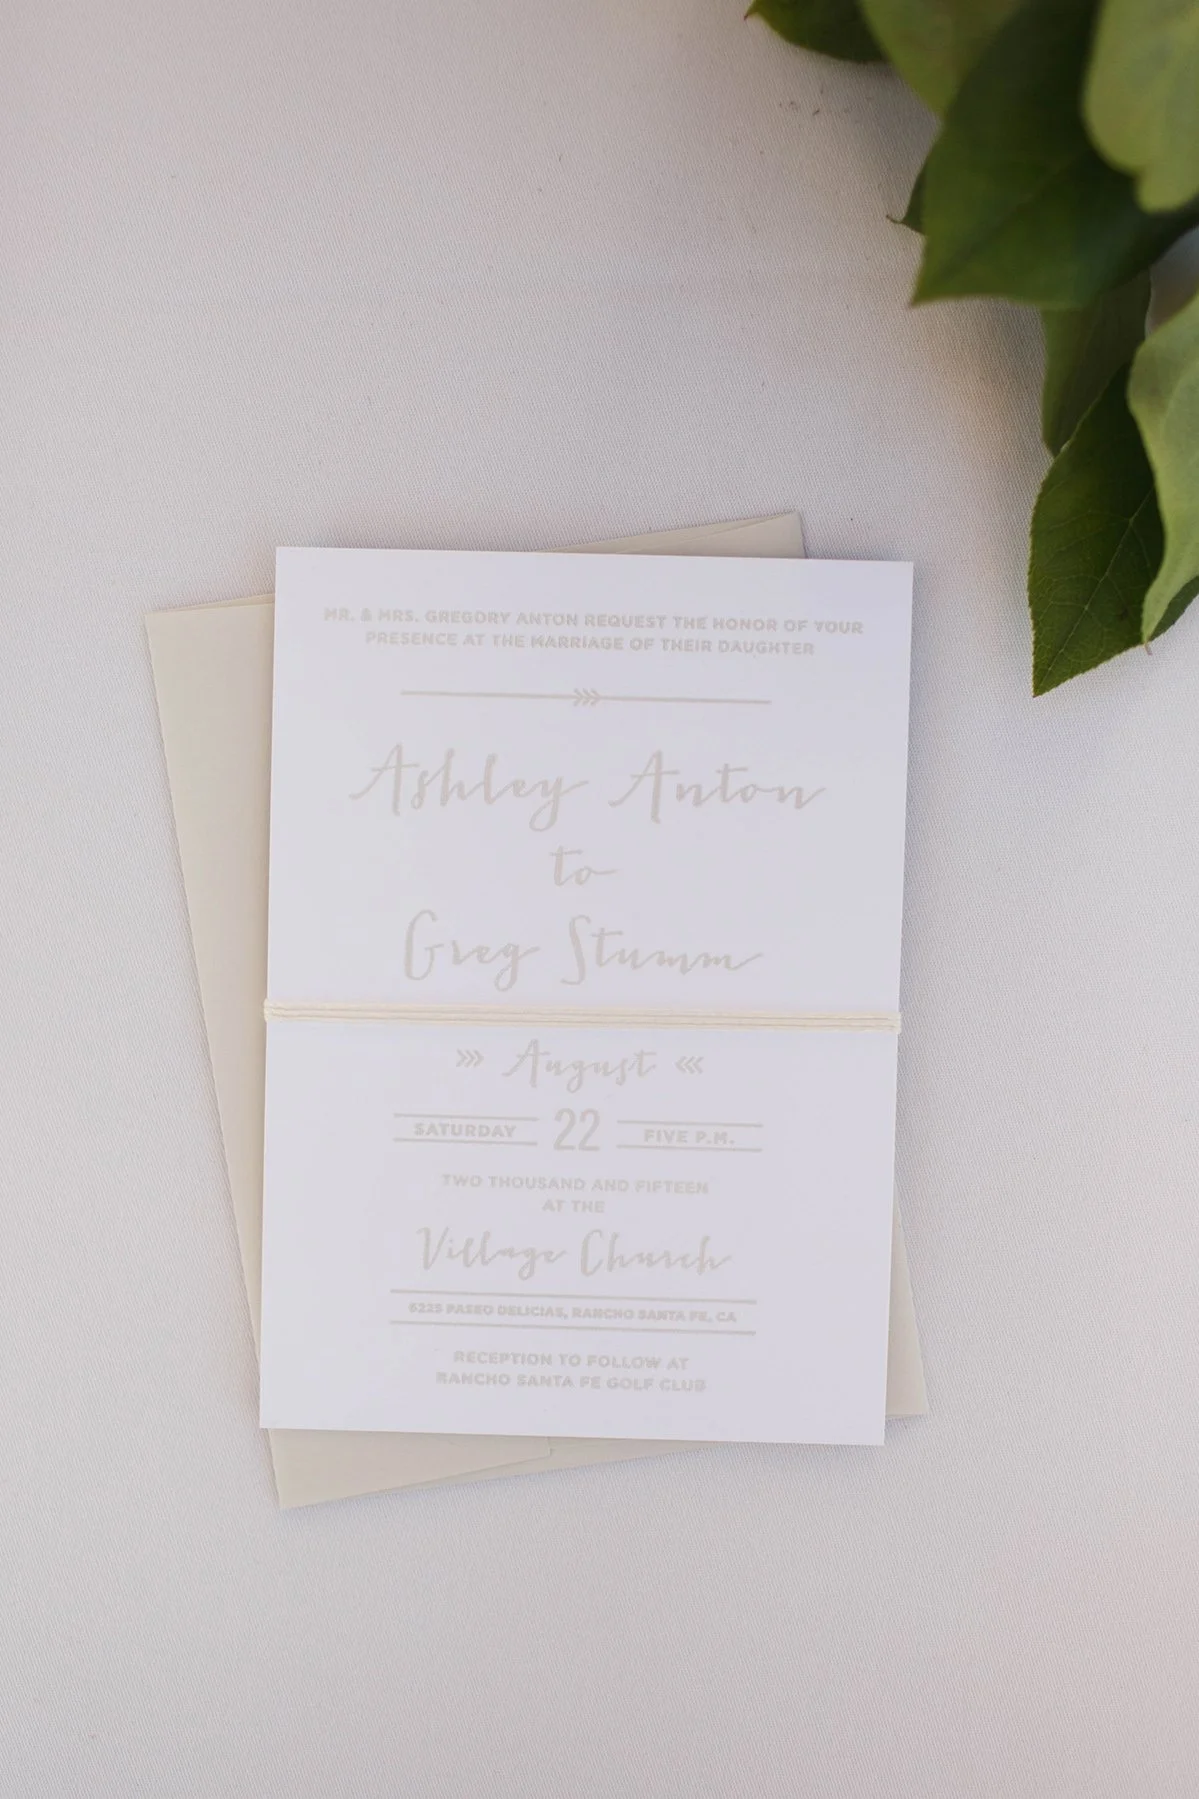 MR. & MRS. GREGORY ANTON REQUEST THE HONOR OF YOUR
PRESENCE AT THE MARRIAGE OF THEIR DAUGHTER
Ashley Anton
to
Greg Stumm
August
SATURDAY 22 FIVE P.M.
TWO THOUSAND AND FIFTEEN
AT THE
Village Church
6225 PASEO DELICIAS, RANCHO SANTA FE, CA
RECEPTION TO FOLLOW AT
RANCHO SANTA FE GOLF CLUB